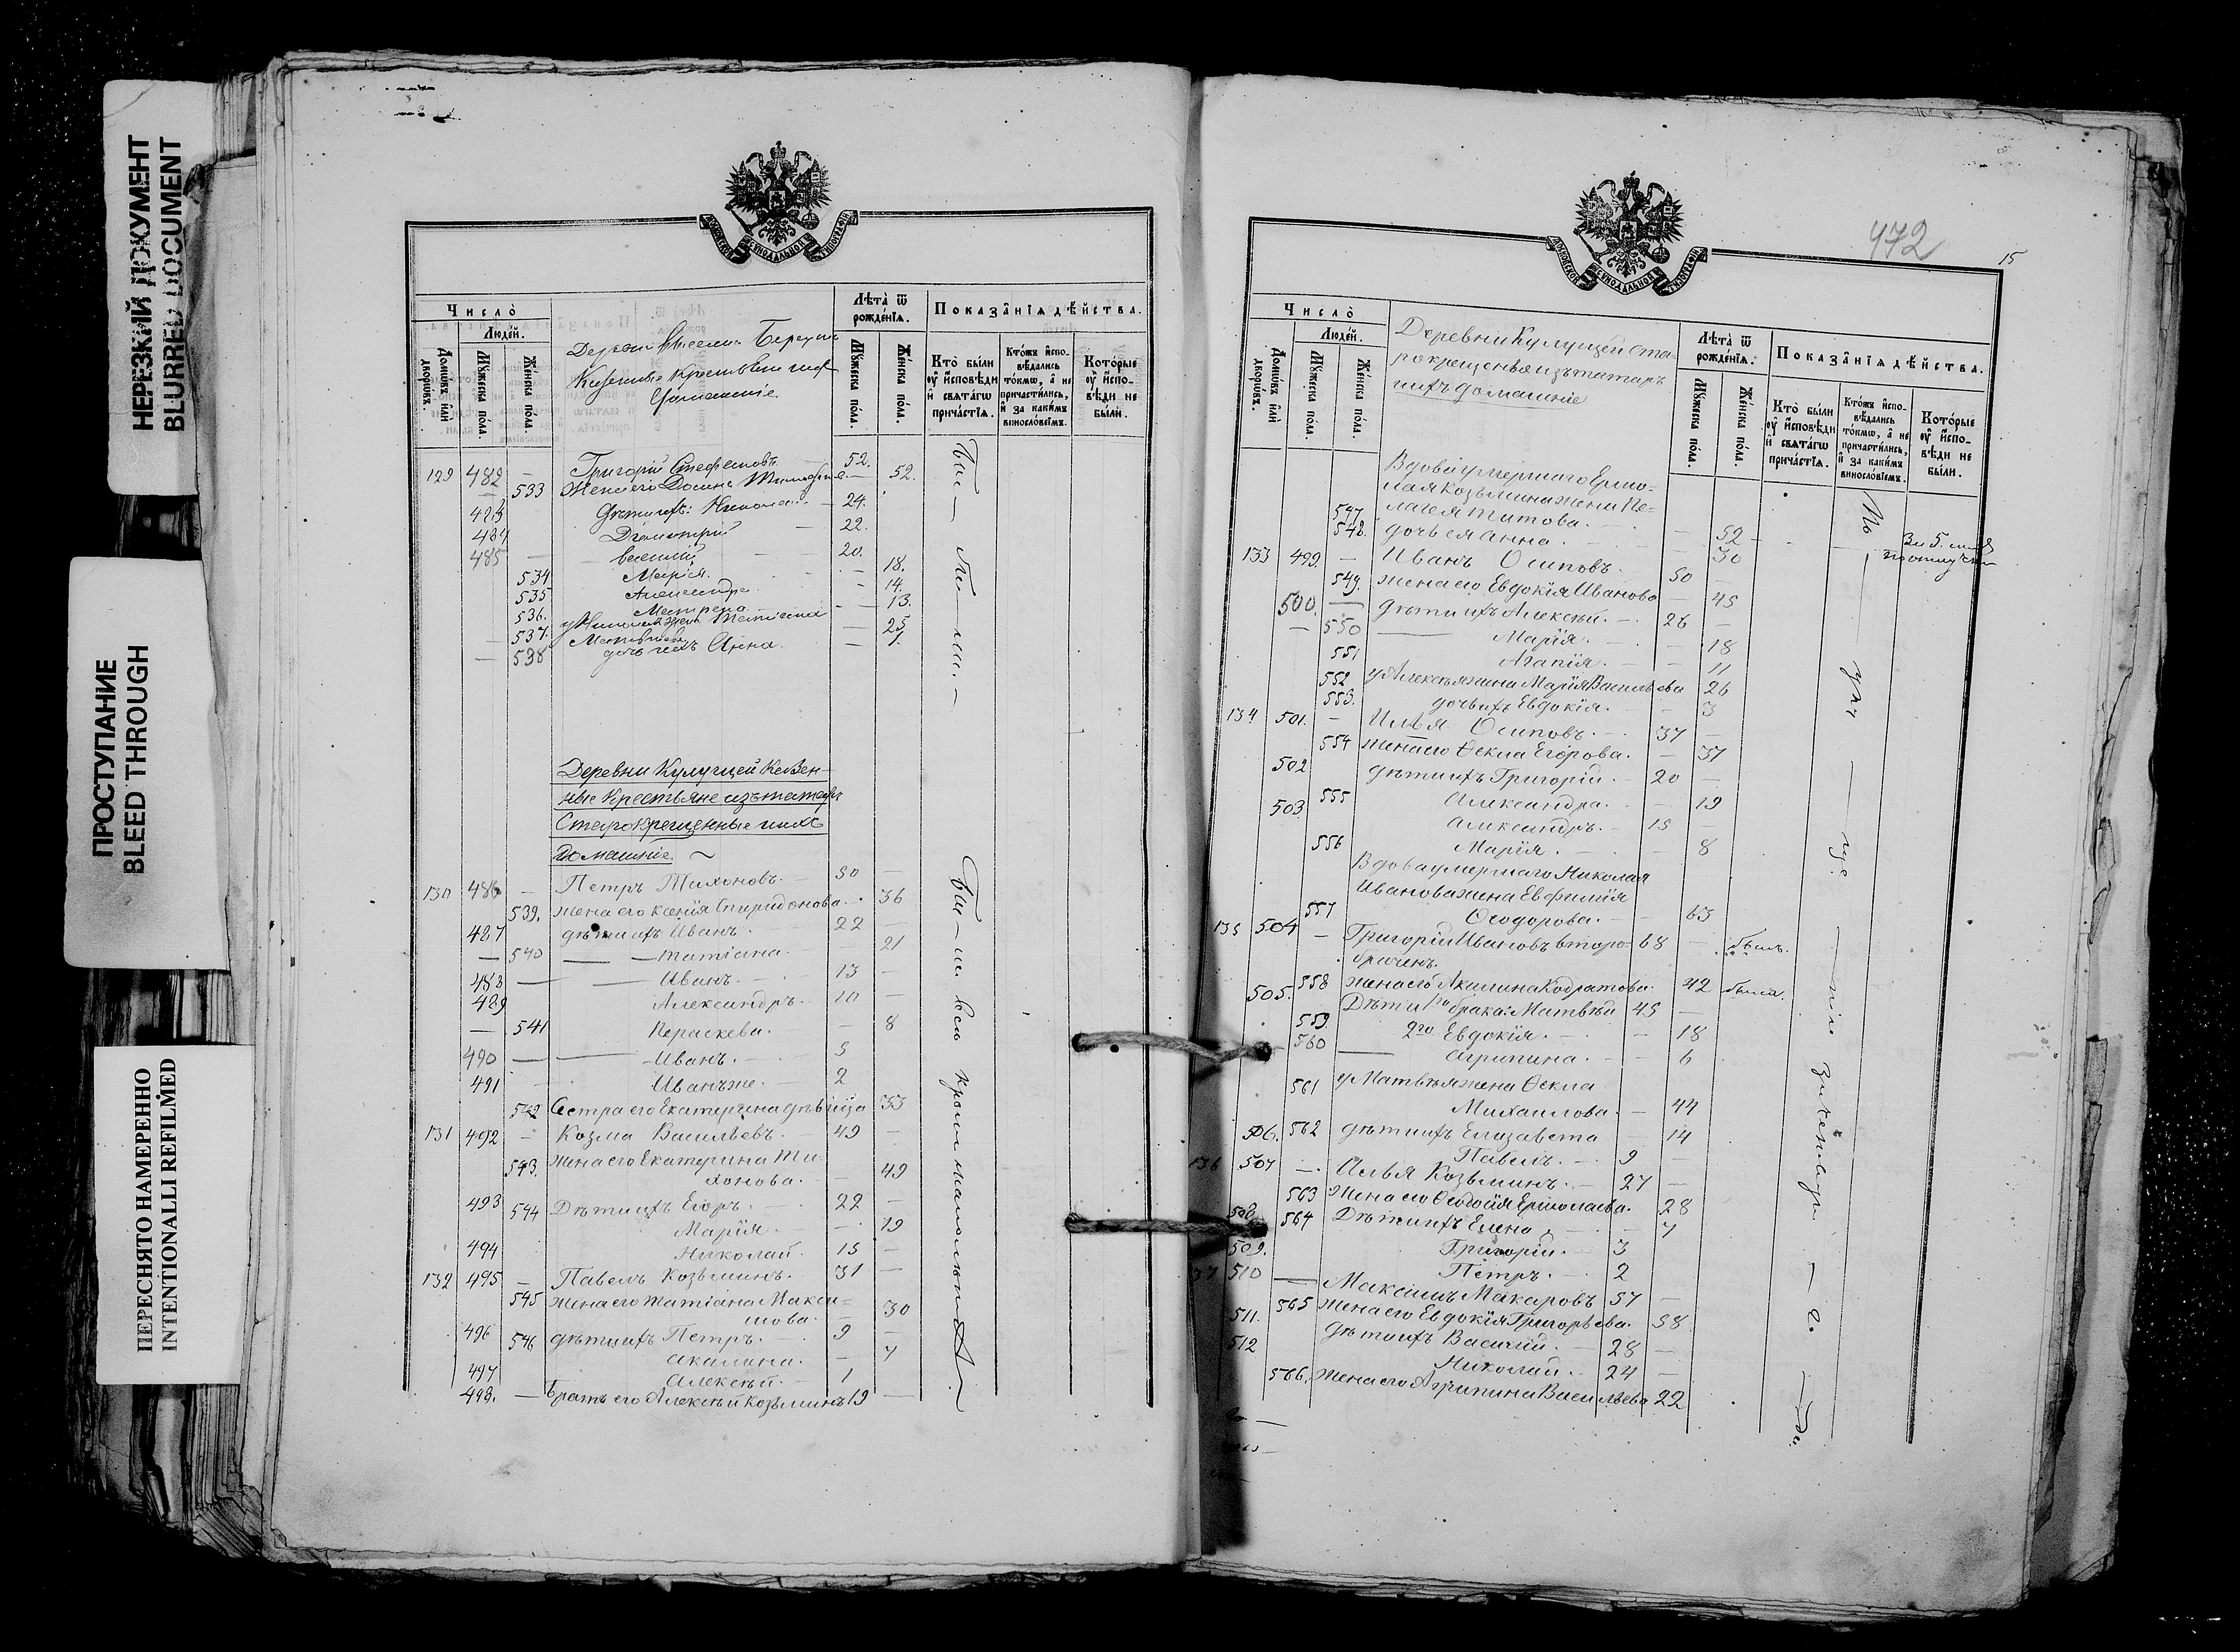 НЕРЕЗКИЙ ДОКУМЕНТ
BLURRED DOCUMENT
ПРОСТУПАНИЕ
BLEED THROUGH
ПЕРЕСНЯТО НАМЕРЕННО
INTENTIONALLI REFILMED
Число̀
Людей.
Домѡвъ и҆лѝ дворѡвъ.
Мꙋжеска пола.
Женска пола.
Лѣта̀ ѿ рожденїѧ.
Мꙋжеска пола.
Женска пола.
Показанїѧ дѣйства.
Кто̀ были оу҆ и҆сповѣди и҆ свѧтагѡ причастїѧ.
Ктожъ и҆спо-
вѣдались
токмѡ, а҆ не
причастились,
и҆ за какимъ
винословїемъ.
Которые оу҆ и҆спо-
вѣди не были.
Деревни
129 482 — Григорій Стефановъ 52.
— 533 Жена его 52.
483 дѣти ихъ: Николай 24.
484 Димитрій — 22.
485 — Василій 20.
534 Марія. — 18.
535 Александра — 14.
536. Матрена — 13.
537. у Николая жена Татіана — 25
— 538 дочь ихъ Анна. — 1.
Деревни Кулущей Казен-
ные Крестьяне изъ татаръ
Старокрещенные и ихъ
Домашніе.
130 486 — Петръ Тихоновъ. — 50 —
539. жена его Ксенія Спиридонова. 36
487 дѣти ихъ Иванъ. 22 —
— 540 Татіана. 21
488 Иванъ. 13 —
489 Александръ. 10 —
— 541 Параскева. — 8
490 — Иванъ. — 5
491 Иванъ же. — 2
542 Сестра его Екатерина дѣвица 33
131 492 — Козма Васильевъ. — 49 —
543. жена его Екатерина Ти-
хонова. — 49
493 544 Дѣти ихъ Егоръ. — 22 —
Марія. — 19
494 Николай. 15 —
132 495 — Павелъ Козьминъ. — 31 —
545 жена его Татіана Макси-
мова. — 30
496 546 дѣти ихъ Петръ. — 9 —
Акилина. — 7
497 Алексѣй. — 1
498. — Братъ его Алексѣй Козьминъ 19 —
472
15
Число̀
Людей.
Домѡвъ и҆лѝ дворѡвъ.
Мꙋжеска пола.
Женска пола.
Деревни Кулущей Ста-
рокрещенныя изъ татаръ
и ихъ домашніе
Лѣта̀ ѿ рожденїѧ.
Мꙋжеска пола.
Женска пола.
Показанїѧ дѣйства.
Кто̀ были оу҆ и҆сповѣди и҆ свѧтагѡ причастїѧ.
Ктожъ и҆спо-
вѣдались
токмѡ, а҆ не
причастились,
и҆ за какимъ
винословїемъ.
Которые оу҆ и҆спо-
вѣди не были.
Вдова умершаго Ермо-
лая Козьмина жена Пе-
547 лагея Титова. — 52
548. дочь ея Анна. — 30
133 499. — Иванъ Осиповъ. 50 —
549. жена его Евдокія Иванова — 45
500. — дѣти ихъ Алексѣй. — 26 —
— 550 Марія. — 18
551 Агапія. — 11
552 у Алексѣя жена Марія Васильева 26
553. дочь ихъ Евдокія. — 3
134 501. — Илья Осиповъ. — 37 —
554 жена его Ѳекла Егорова. — 37
502 дѣти ихъ Григорій. — 20 —
555 Александра. — 19
503 Александръ. — 15 —
556 Марія. — 8
Вдова умершаго Николая
Иванова жена Евфимія
557 Ѳеодорова. — 63
135 504 — Григорій Ивановъ второ- 68 — былъ.
браченъ.
558 жена его Акилина Кодратова. 42 была.
505. Дѣти 1го брака: Матвѣй 45 —
559. 2го Евдокія. — 18
560 Агрипина. — 6
561 у Матвѣя жена Ѳекла
Михаилова. — 44
506. 562 дѣти ихъ Елизавета — 14
Павелъ. — 9 —
136 507 — Илья Козьминъ. — 27 —
563 жена его Ѳеодосія Ермолаева. 28
508. 564 Дѣти ихъ Елена — 7
509. Григорій. — 3
Петръ. — 2
37 510 — Максимъ Макаровъ 57 —
565 жена его Евдокія Григорьева. 58
511. дѣти ихъ Василій. — 28 —
512 Николай. — 24 —
566. жена его Агрипина Васильева 22